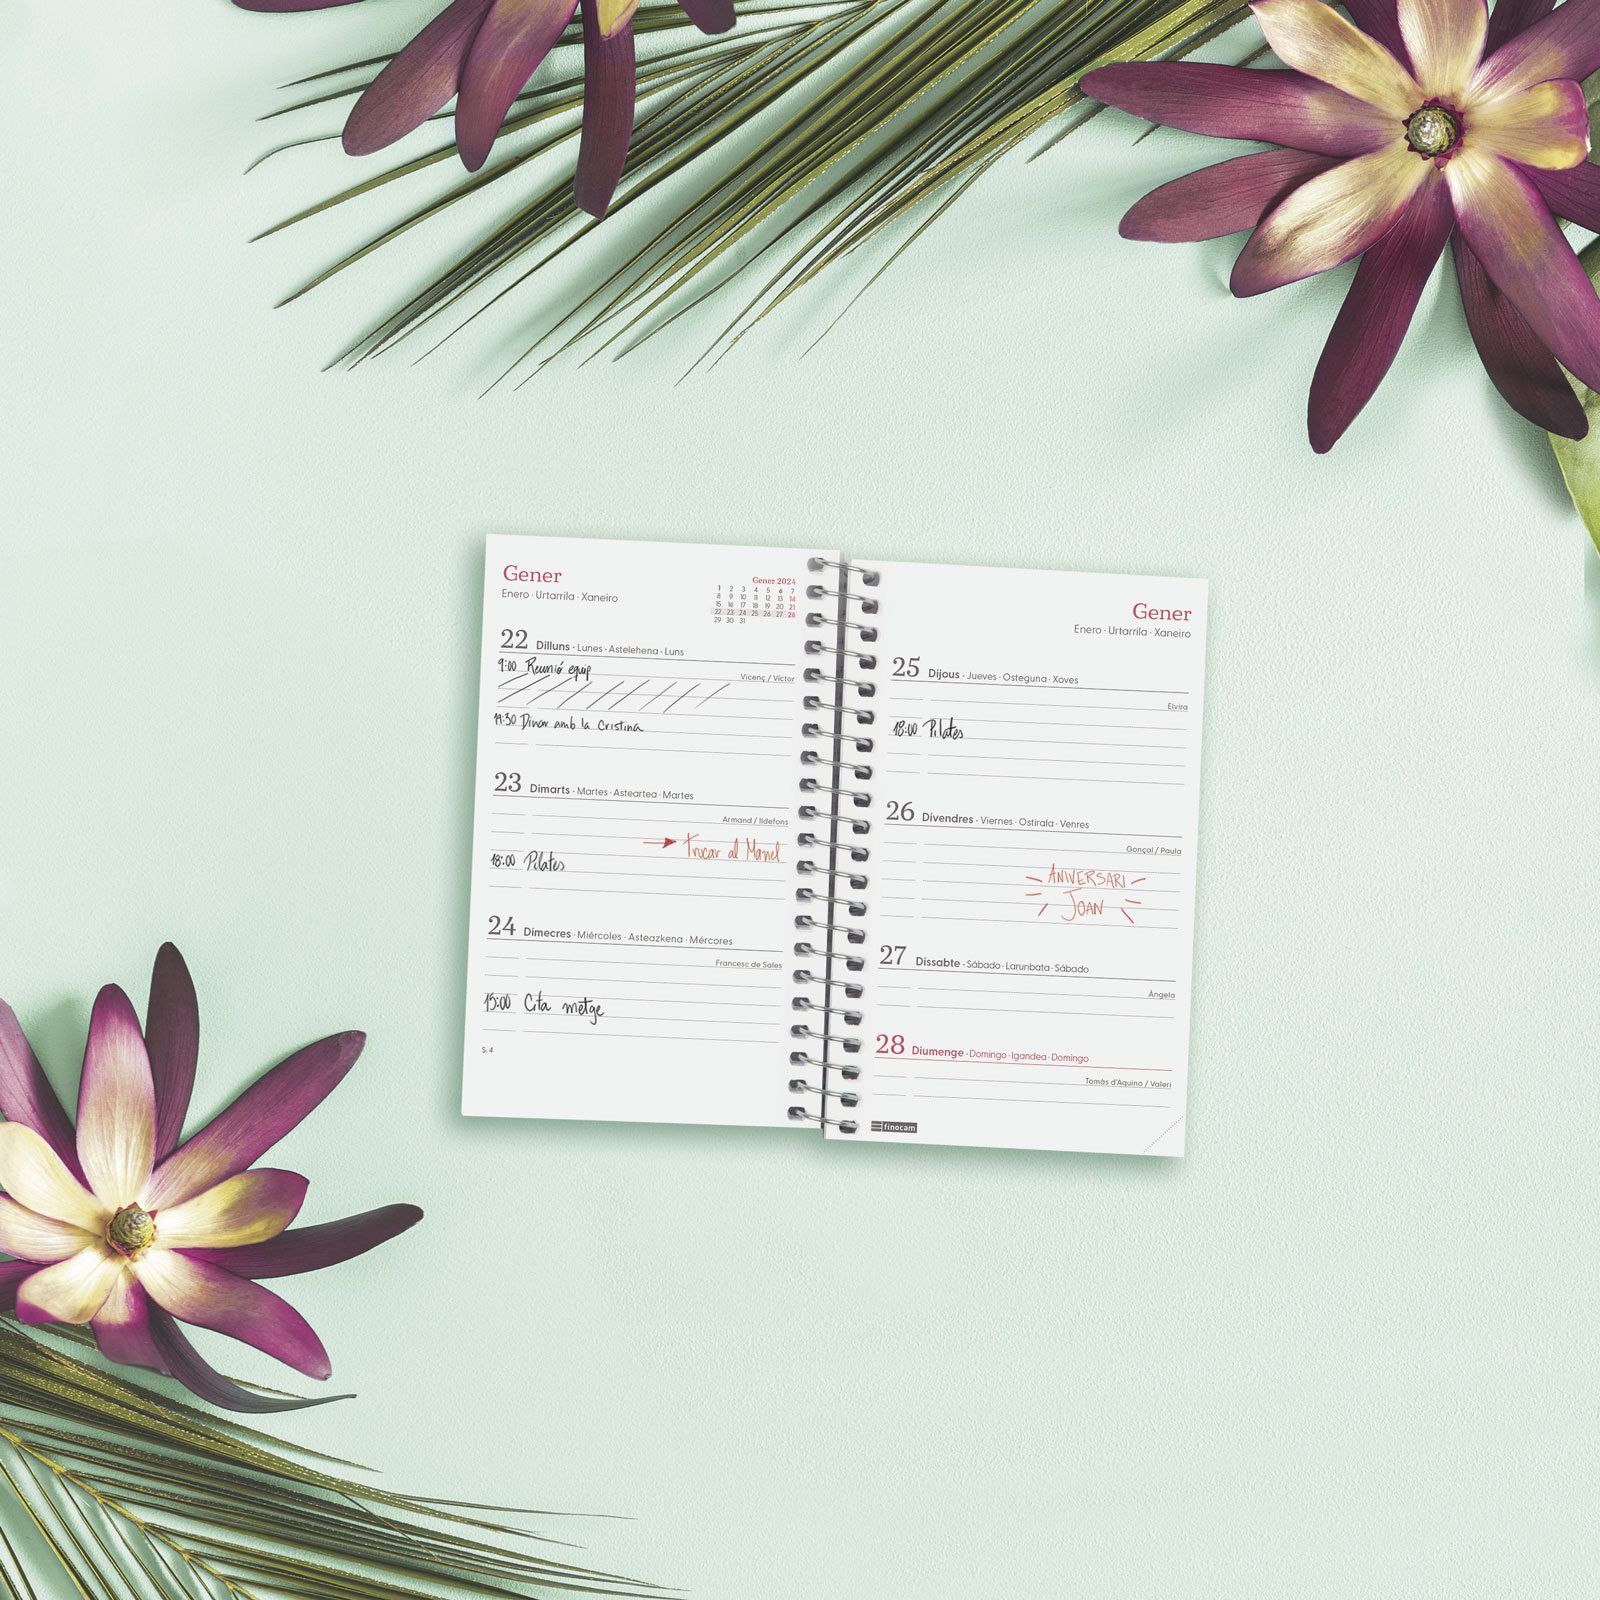 Gener
Enero · Urtarrila · Xaneiro
Gener 2024
1 2 3 4 5 6 7
8 9 10 11 12 13 14
15 16 17 18 19 20 21
22 23 24 25 26 27 28
29 30 31
22 Dilluns · Lunes · Astelehena · Luns
Vicenç / Víctor
9:00 Reunió equip
14:30 Dinar amb la Cristina
23 Dimarts · Martes · Asteartea · Martes
Armand / Ildefons
Trucar al Manel
18:00 Pilates
24 Dimecres · Miércoles · Asteazkena · Mércores
Francesc de Sales
15:00 Cita metge
S. 4
Gener
Enero · Urtarrila · Xaneiro
25 Dijous · Jueves · Osteguna · Xoves
Elvira
18:00 Pilates
26 Divendres · Viernes · Ostirala · Venres
Gonçal / Paula
ANIVERSARI
JOAN
27 Dissabte · Sábado · Larunbata · Sábado
Àngela
28 Diumenge · Domingo · Igandea · Domingo
Tomàs d'Aquino / Valeri
finocam